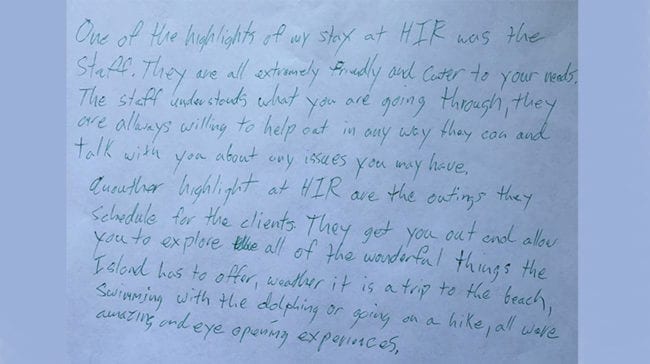 One of the highlights of my stay at HIR was the
Staff. They are all extremely friendly and cater to your needs.
The staff understands what you are going through, they
are allways willing to help out in any way they can and
talk with you about any issues you may have.
Anouther highlight at HIR are the outings they
Schedule for the clients. They get you out and allow
you to explore all of the wonderful things the
Island has to offer, weather it is a trip to the beach,
Swimming with the dolphing or going on a hike, all were
amazing and eye opening experiences.